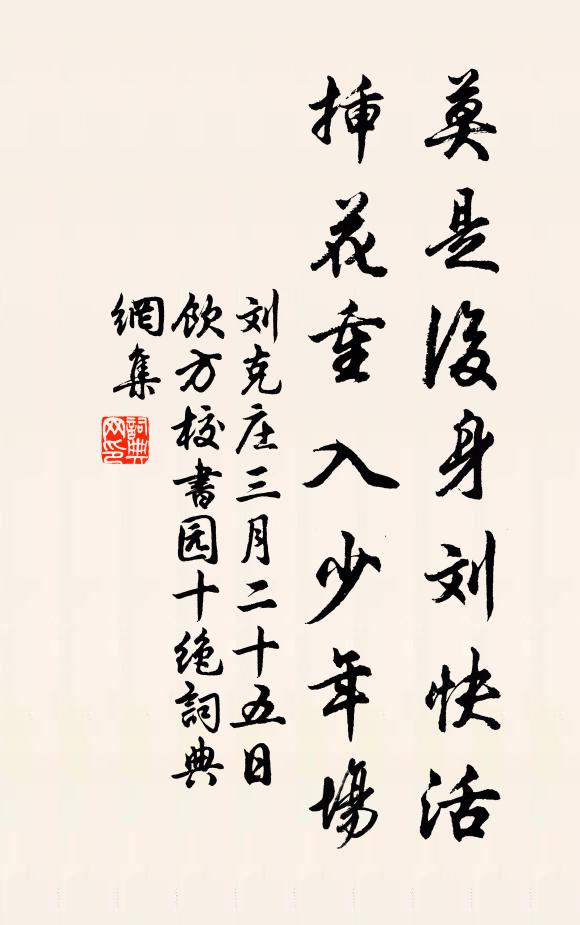 莫是後身刘快活
揷花重入少年場
刘克庄三月二十五日
飲方校書园十绝詞典
網集
詞典网印